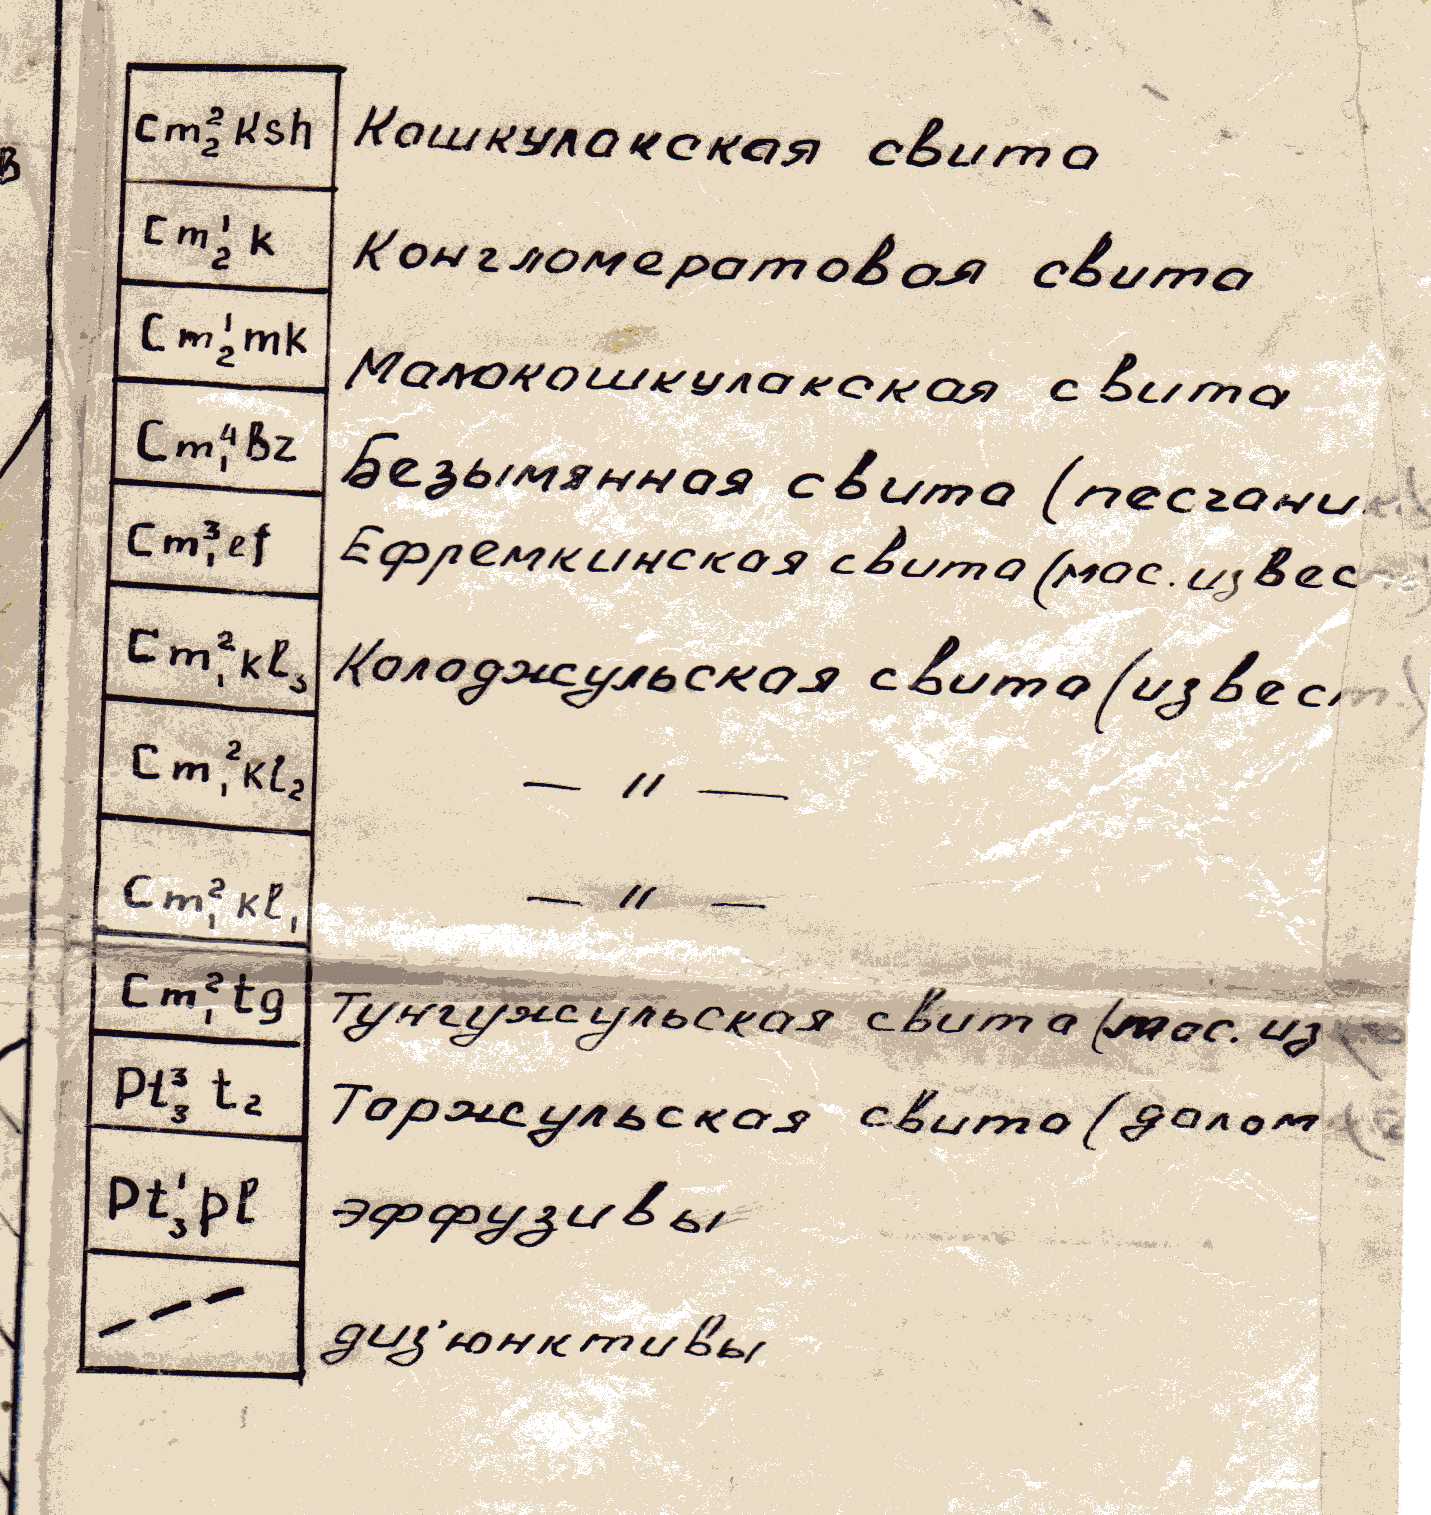 в
Cm₂²ksh Кошкулакская свита
Cm₂¹k Конгломератовая свита
Cm₂¹mk Малокошкулакская свита
Cm₁⁴Bz Безымянная свита (песчани
Cm₁³ef Ефремкинская свита (мас. извес
Cm₁²kl₃ Колоджульская свита (извест.)
Cm₁²kl₂ — " —
Cm₁²kl₁ — " —
Cm₁²tg Тунгужульская свита (мас. из
Pt₃³t₂ Таржульская свита (далом
Pt₃¹pl эффузивы
диз'юнктивы